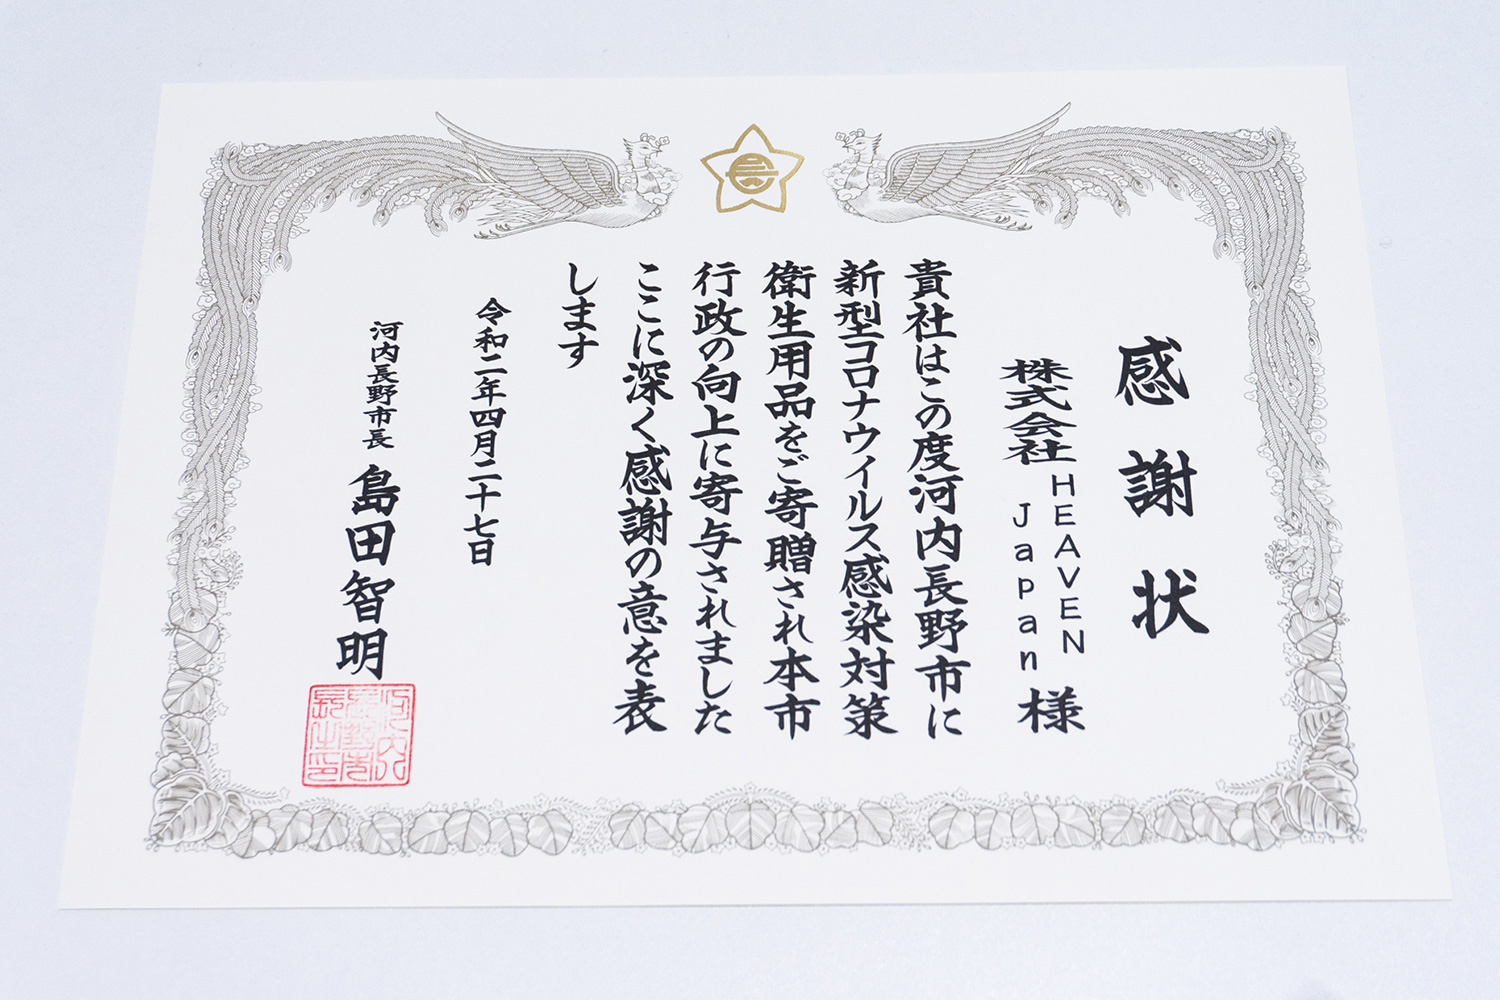 感謝状
株式会社HEAVEN Japan様
貴社はこの度河内長野市に
新型コロナウイルス感染対策
衛生用品をご寄贈され本市
行政の向上に寄与されました
ここに深く感謝の意を表
します
令和二年四月二十七日
河内長野市長 島田智明
河内長野市長之印